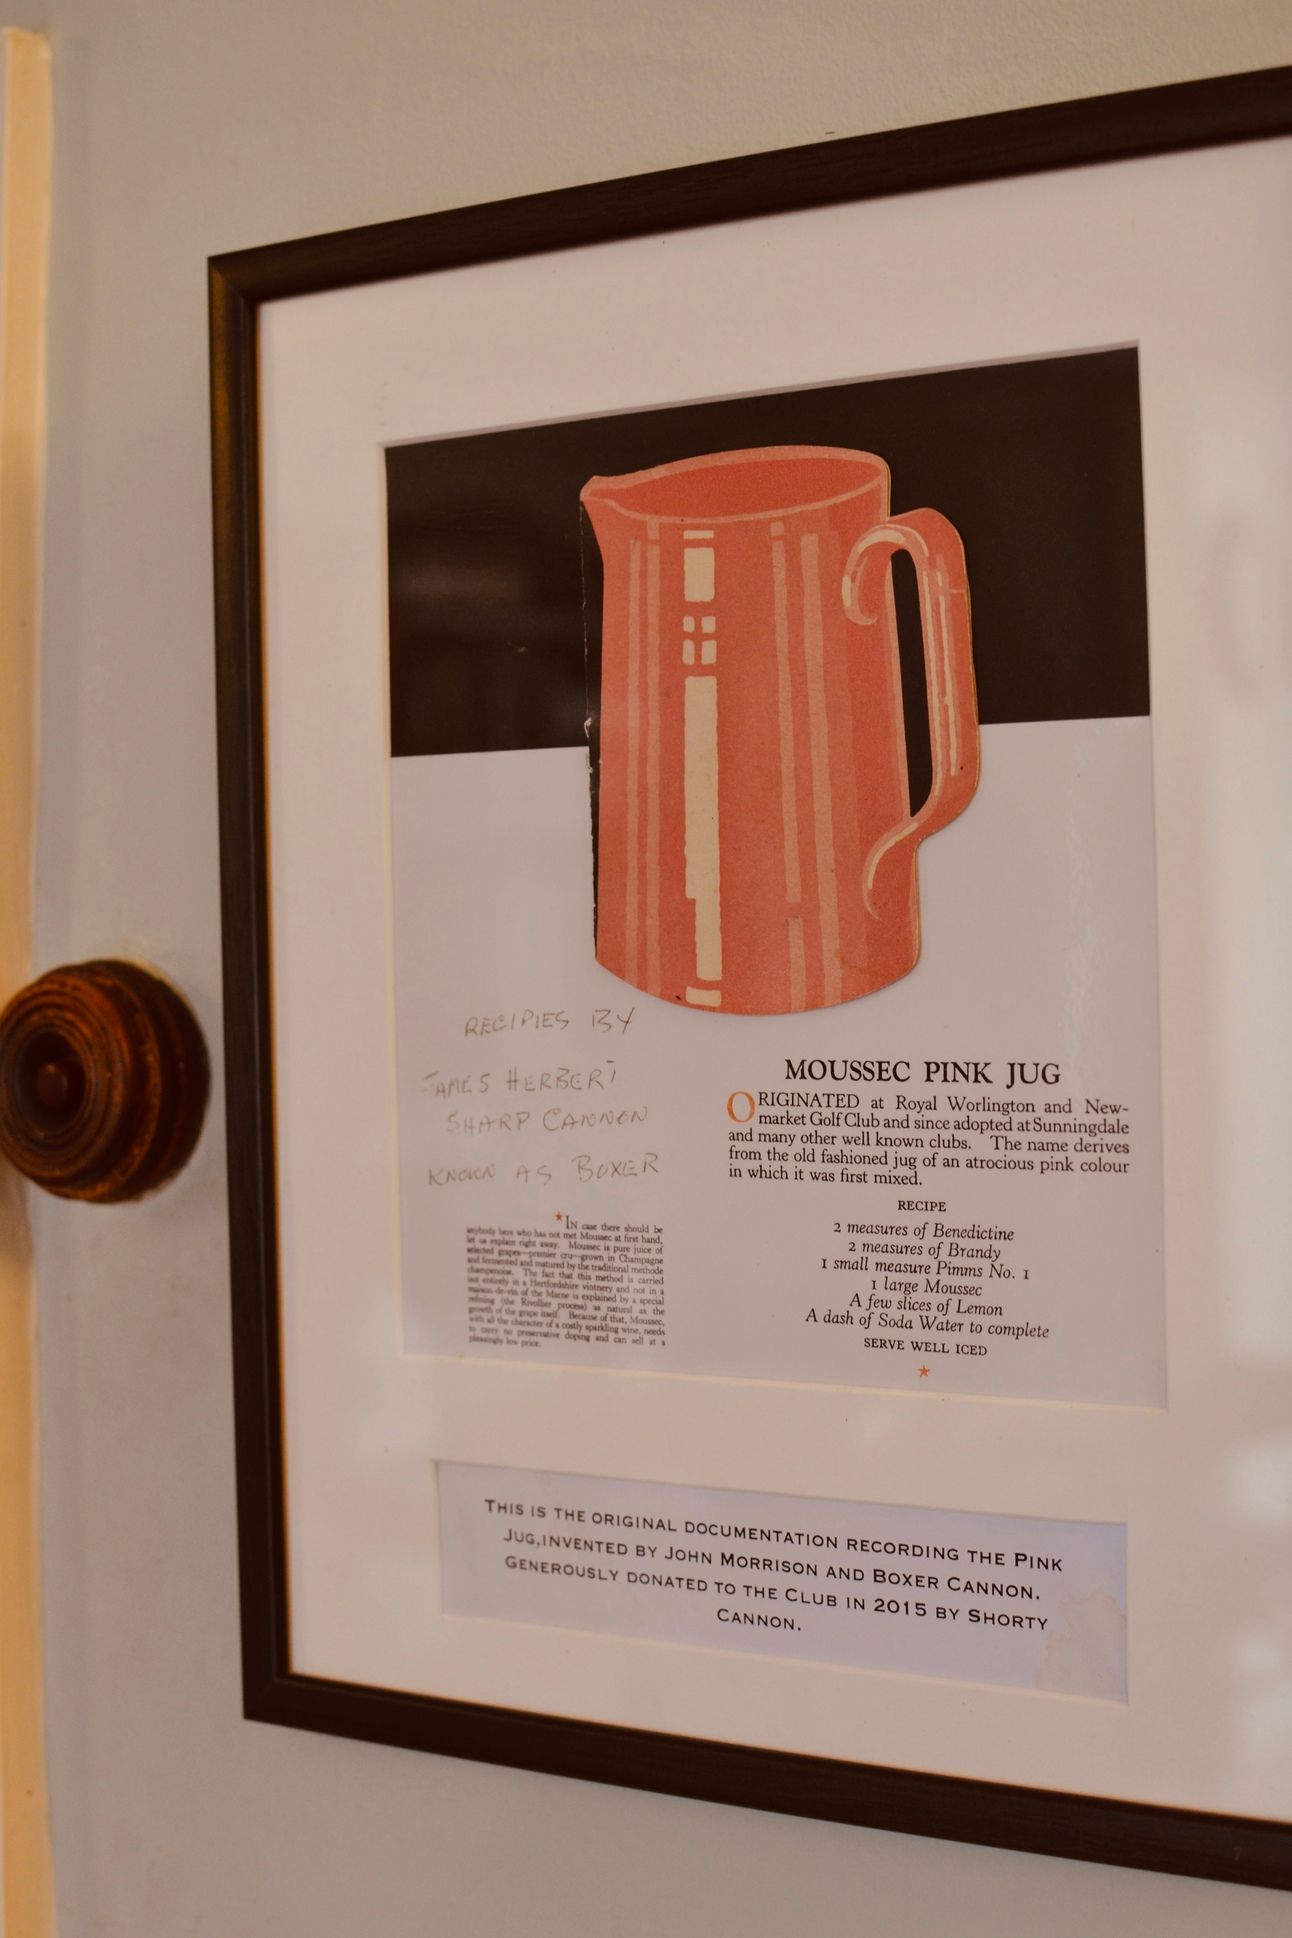 RECIPIES BY
JAMES HERBERT
SHARP CANNON
KNOWN AS BOXER
*IN case there should be
anybody here who has not met Moussec at first hand,
let us explain right away. Moussec is pure juice of
selected grapes—premier cru—grown in Champagne
and fermented and matured by the traditional methode
champenoise. The fact that this method is carried
out entirely in a Hertfordshire vintnery and not in a
maison-de-vin of the Marne is explained by a special
refining (the Rivollier process) as natural as the
growth of the grape itself. Because of that, Moussec,
with all the character of a costly sparkling wine, needs
to carry no preservative doping and can sell at a
pleasingly low price.
MOUSSEC PINK JUG
ORIGINATED at Royal Worlington and New-
market Golf Club and since adopted at Sunningdale
and many other well known clubs. The name derives
from the old fashioned jug of an atrocious pink colour
in which it was first mixed.
RECIPE
2 measures of Benedictine
2 measures of Brandy
1 small measure Pimms No. 1
1 large Moussec
A few slices of Lemon
A dash of Soda Water to complete
SERVE WELL ICED
THIS IS THE ORIGINAL DOCUMENTATION RECORDING THE PINK
JUG,INVENTED BY JOHN MORRISON AND BOXER CANNON.
GENEROUSLY DONATED TO THE CLUB IN 2015 BY SHORTY
CANNON.